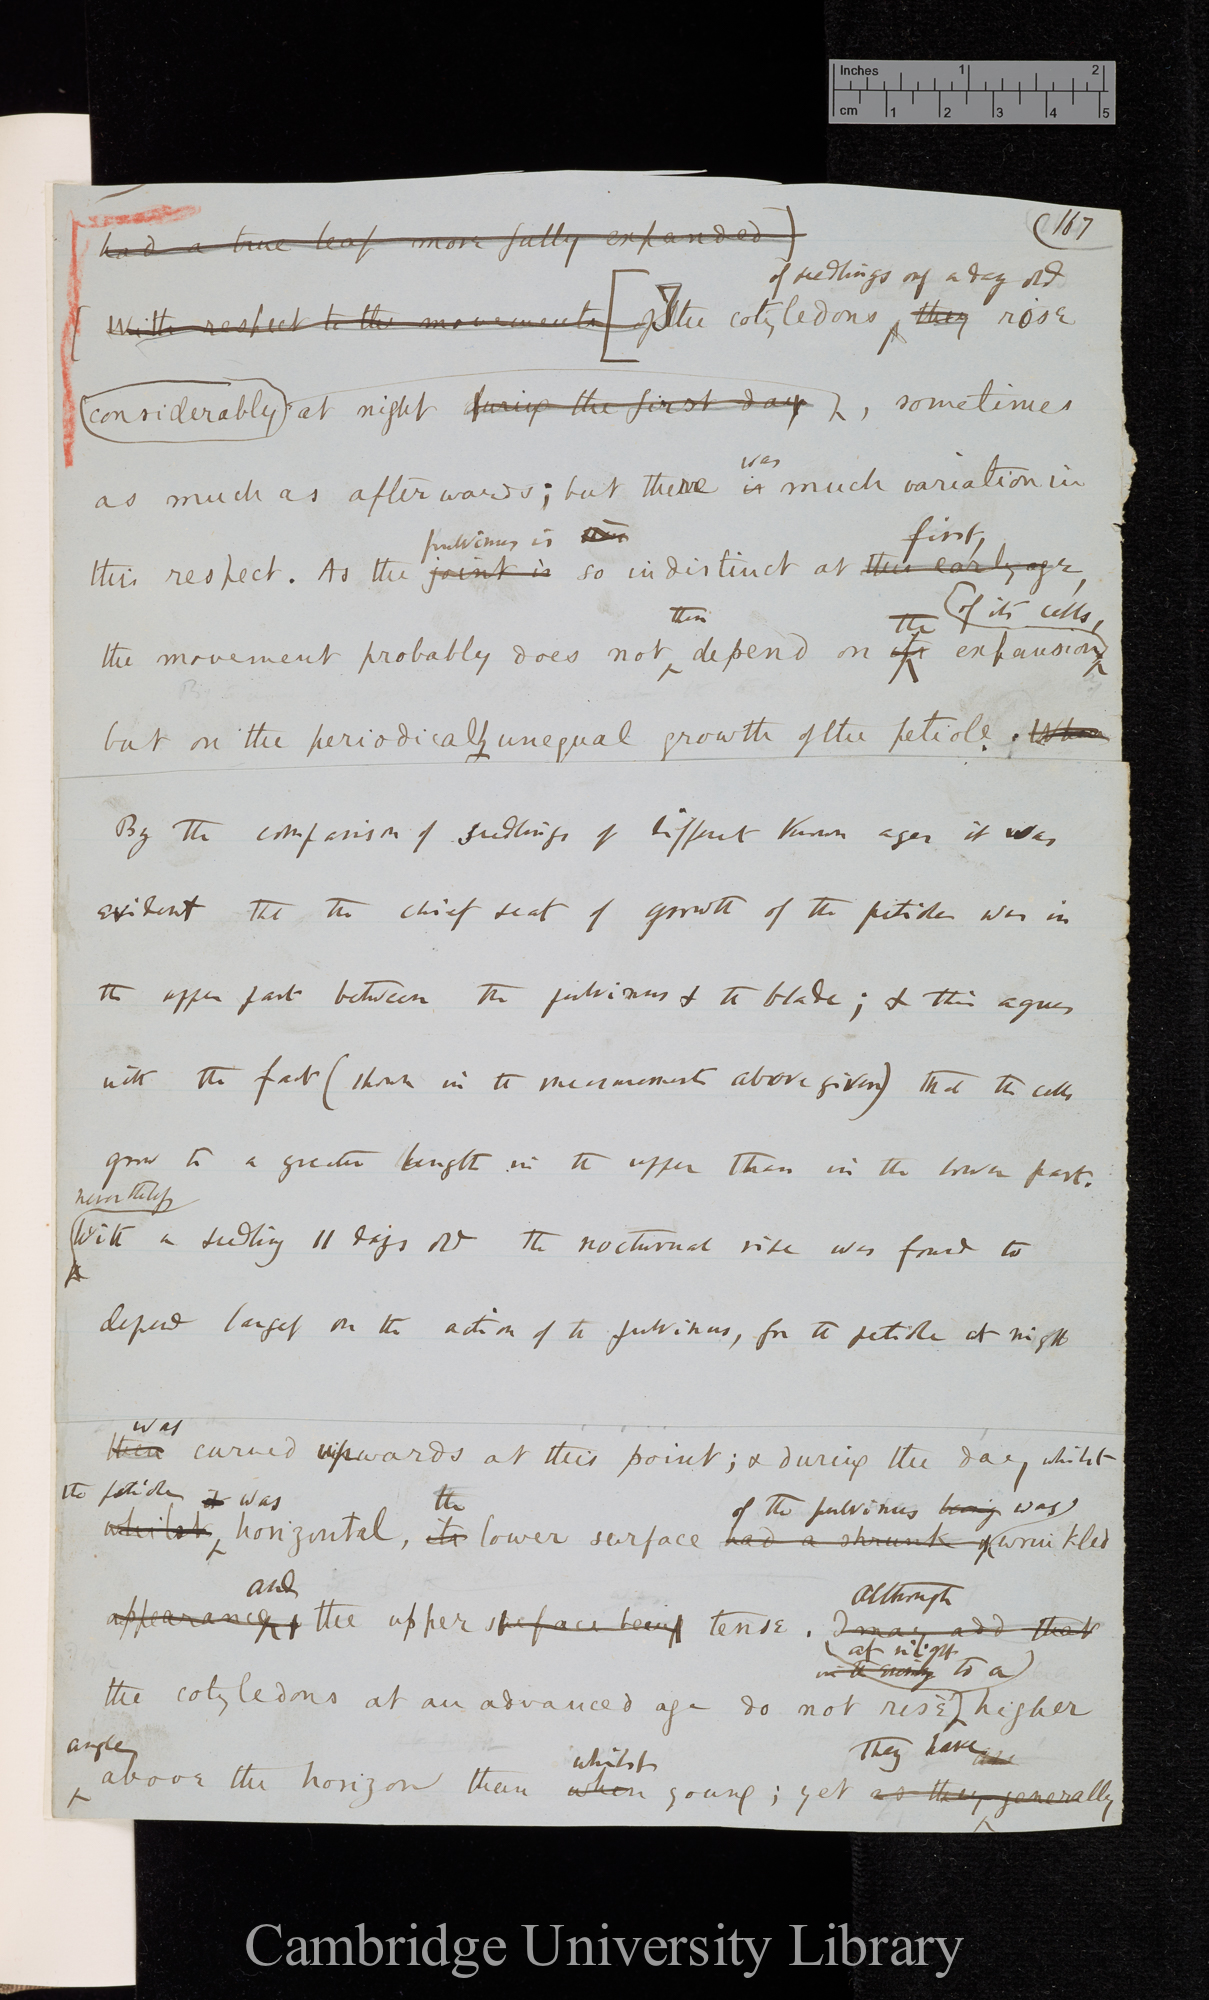 Inches 1 2
cm 1 2 3 4 5
167
had a true leaf more fully expanded)
of seedlings only a day old
With respect to the movements of the cotyledons they rise
considerably at night during the first day, sometimes
was
as much as afterwards; but there is much variation in
pulvinus is first,
this respect. As the joint is so indistinct at this early age,
then the of its cells,
the movement probably does not depend on its expansion
but on the periodically unequal growth of the petiole. When
By the comparison of seedlings of different known ages it was
evident that the chief seat of growth of the petioles was in
the upper part between the pulvinus & the blade; & this agrees
with the fact (shown in the measurements above given) that the cells
grow to a greater length in the upper than in the lower part.
nevertheless
With a seedling 11 days old the nocturnal rise was found to
depend largely on the action of the pulvinus, for the petiole at night
was
then curved upwards at this point; & during the day, whilst
the petiole it was the of the pulvinus being was
whilst horizontal, its lower surface had a shrunk & wrinkled
and Although
appearance, the upper surface being tense. I may add that
at night
in the evening to a
the cotyledons at an advanced age do not rise higher
angle whilst They have
above the horizon than when young; yet as they generally
Cambridge University Library